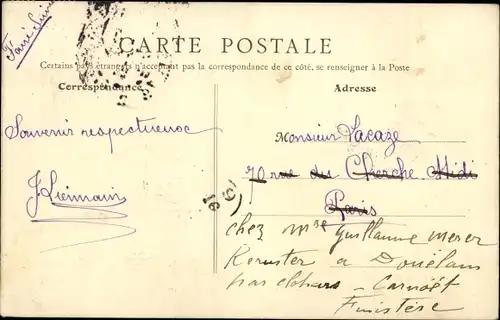 Faire suivre
CARTE POSTALE
Certains pays étrangers n'acceptant pas la correspondance de ce côté, se renseigner à la Poste
Correspondance
Adresse
Souvenir respectueux
Monsieur Lacaze
70 rue du Cherche Midi
Paris
chez Mre Guillaume
a Douëlan
par Carnoët
Finistère